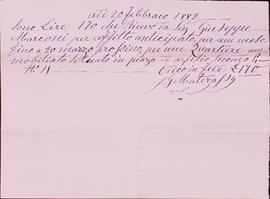 Addì 20 Febbraio 1882
Sono Lire 170 che ricevo da Sig. Giuseppe
Marconi per affitto anticipato, per un mese
fino a 20 marzo prossimo, per uno Quartiere am-
mobiliato situato in piazza secondo
No 1 In fede £ 170